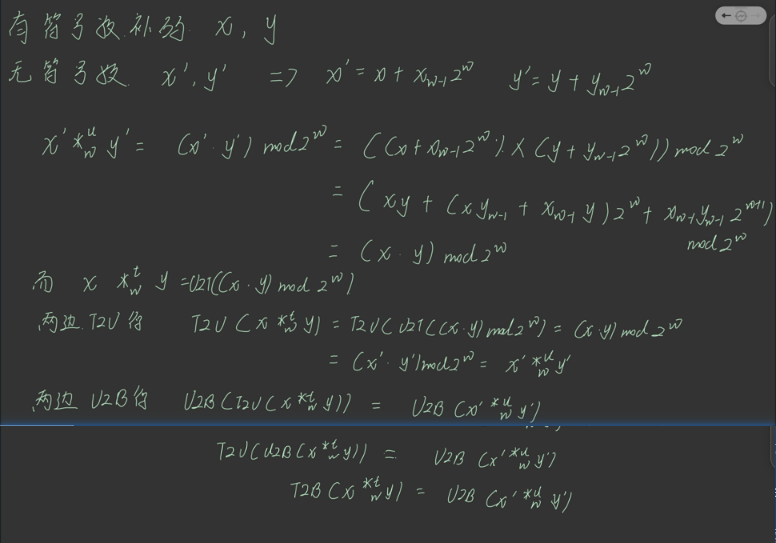 有符号数补码 x, y
无符号数 x', y' => x' = x + x_{w-1}2^w y' = y + y_{w-1}2^w
x' *^u_w y' = (x' · y') mod 2^w = ((x + x_{w-1}2^w) × (y + y_{w-1}2^w)) mod 2^w
= (xy + (xy_{w-1} + x_{w-1}y)2^w + x_{w-1}y_{w-1}2^{w+1})
mod 2^w
= (x · y) mod 2^w
而 x *^t_w y = U2T((x · y) mod 2^w)
两边 T2U 得 T2U(x *^t_w y) = T2U(U2T((x · y) mod 2^w) = (x · y) mod 2^w
= (x' · y') mod 2^w = x' *^u_w y'
两边 U2B 得 U2B(T2U(x *^t_w y)) = U2B(x' *^u_w y')
T2U(U2B(x *^t_w y)) = U2B(x' *^u_w y')
T2B(x *^t_w y) = U2B(x' *^u_w y')